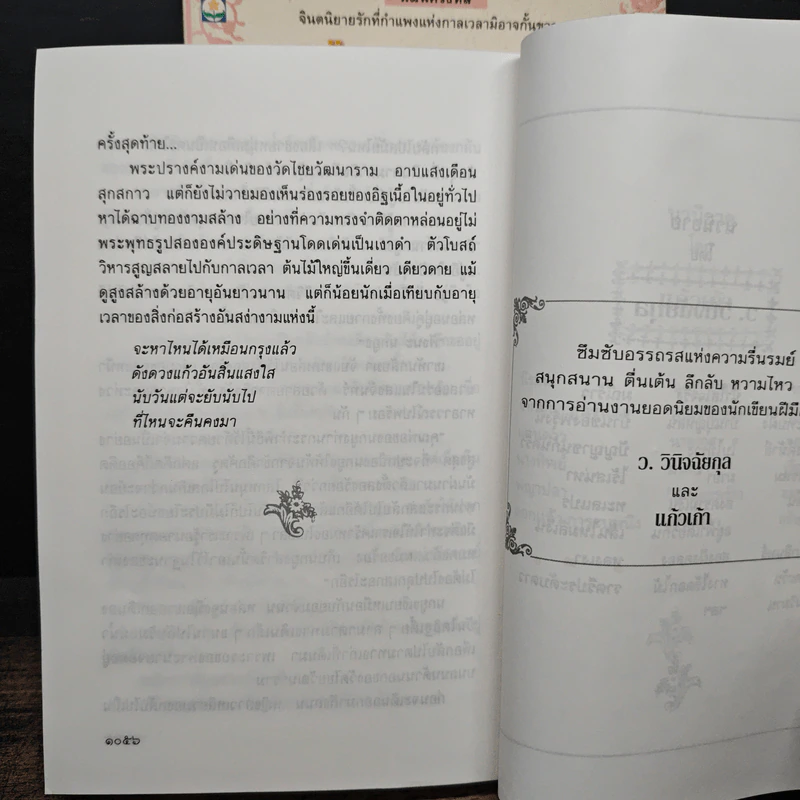 จินตนิยายรักที่กำแพงแห่งกาลเวลามิอาจกั้นขวาง
ครั้งสุดท้าย...
พระปรางค์งามเด่นของวัดไชยวัฒนาราม อาบแสงเดือน
สุกสกาว แต่ก็ยังไม่วายมองเห็นร่องรอยของอิฐเนื้อในอยู่ทั่วไป
หาได้ฉาบทองงามสล้าง อย่างที่ความทรงจำติดตาหล่อนอยู่ไม่
พระพุทธรูปสององค์ประดิษฐานโดดเด่นเป็นเงาดำ ตัวโบสถ์
วิหารสูญสลายไปกับกาลเวลา ต้นไม้ใหญ่ขึ้นเดี่ยว เดียวดาย แม้
ดูสูงสล้างด้วยอายุอันยาวนาน แต่ก็น้อยนักเมื่อเทียบกับอายุ
เวลาของสิ่งก่อสร้างอันสง่างามแห่งนี้
จะหาไหนได้เหมือนกรุงแล้ว
ดังดวงแก้วอันสิ้นแสงใส
นับวันแต่จะยับนับไป
ที่ไหนจะคืนคงมา
๑๐๕๖
ซึมซับอรรถรสแห่งความรื่นรมย์
สนุกสนาน ตื่นเต้น ลึกลับ หวามไหว
จากการอ่านงานยอดนิยมของนักเขียนฝีมือ
ว. วินิจฉัยกุล
และ
แก้วเก้า